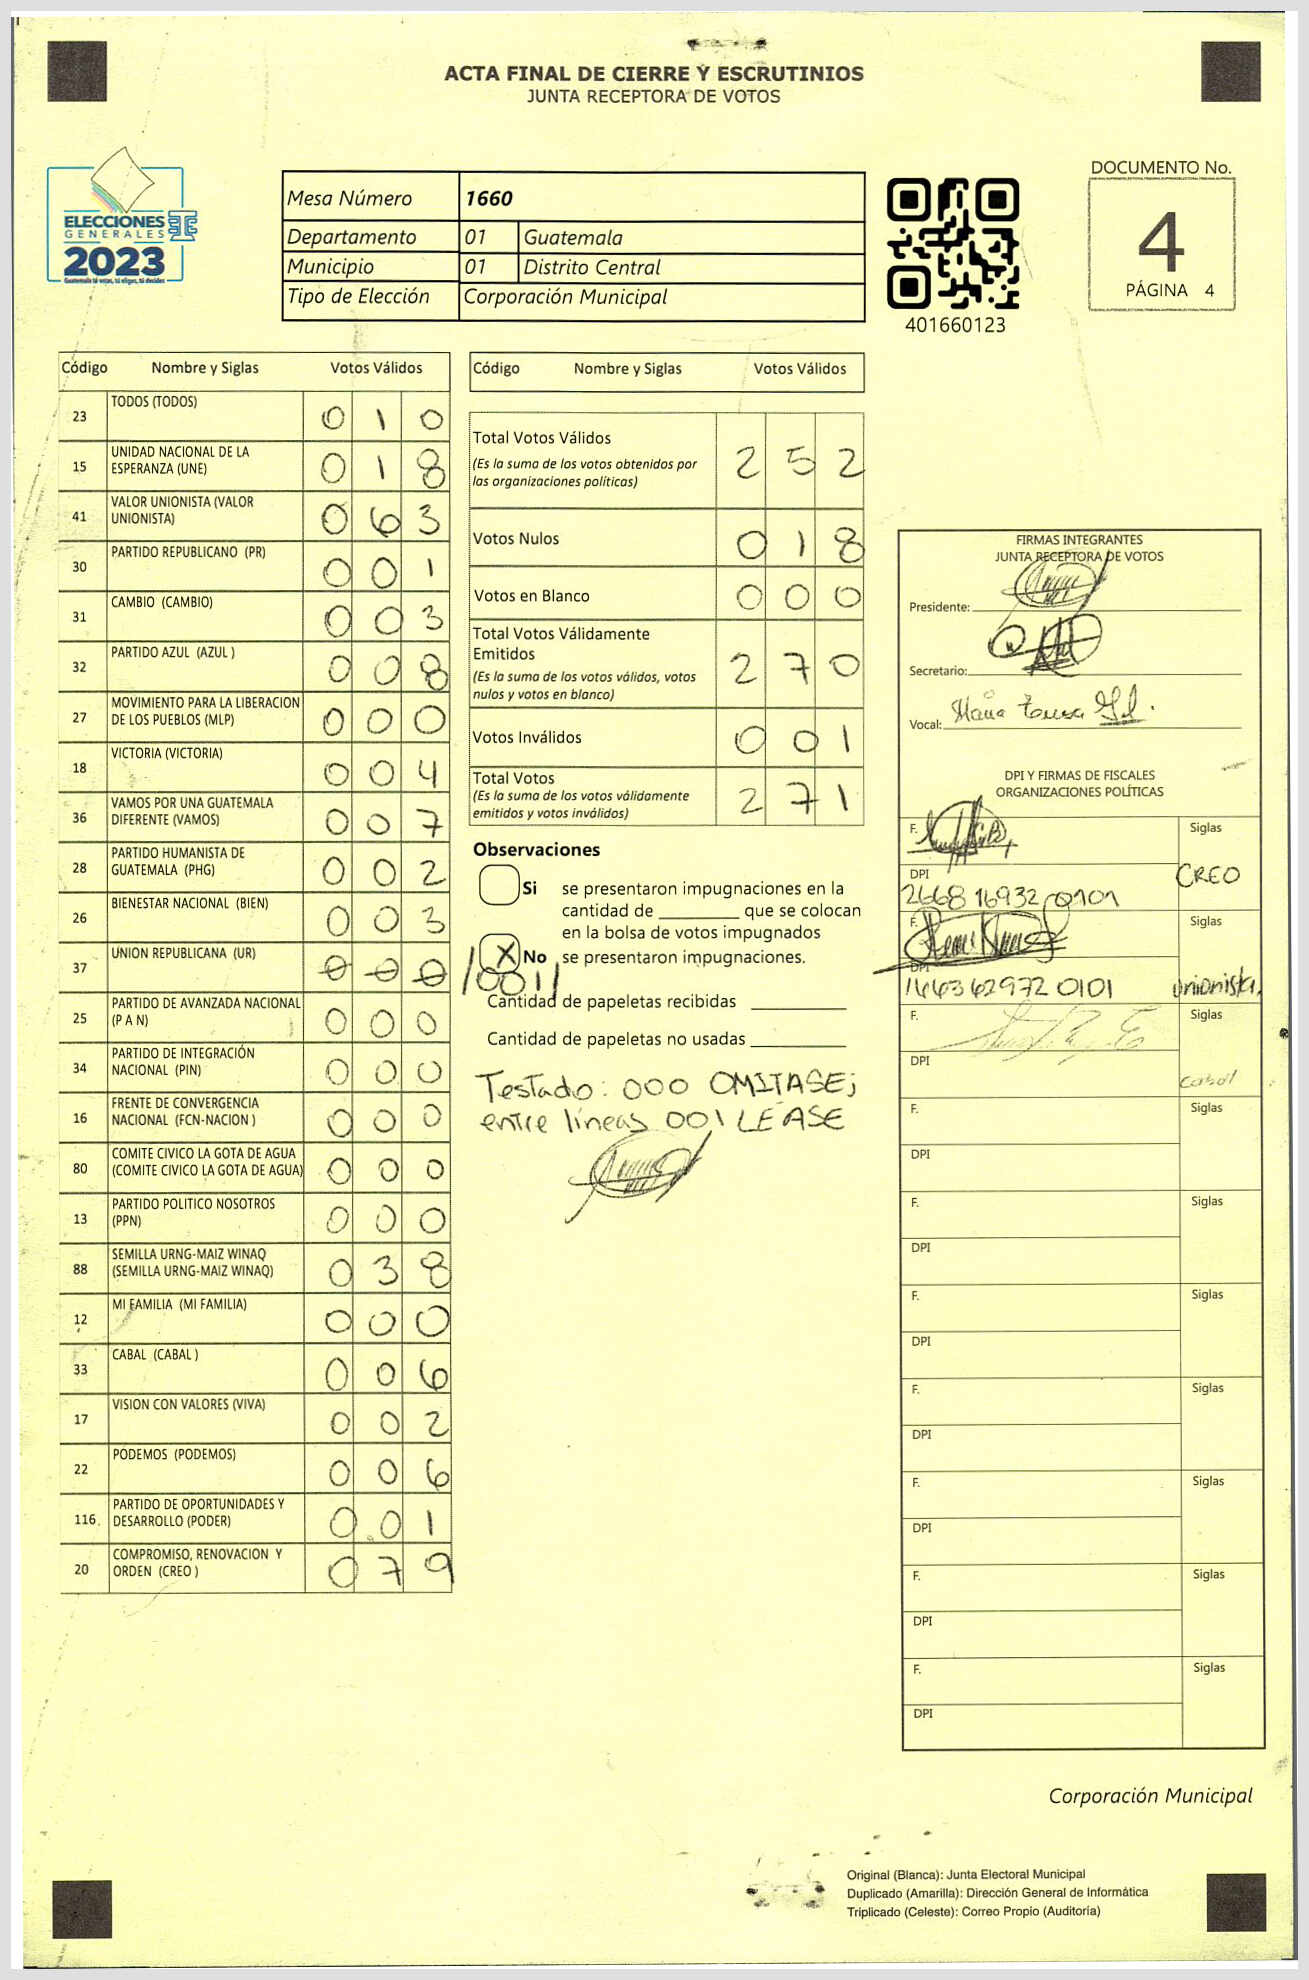 ACTA FINAL DE CIERRE Y ESCRUTINIOS
JUNTA RECEPTORA DE VOTOS
ELECCIONES
GENERALES
2023
Guatemala tú votas, tú eliges, tú decides
Mesa Número 1660
Departamento 01 Guatemala
Municipio 01 Distrito Central
Tipo de Elección Corporación Municipal
401660123
DOCUMENTO No.
4
PÁGINA 4
Código Nombre y Siglas Votos Válidos
23 TODOS (TODOS) 0 1 0
15 UNIDAD NACIONAL DE LA
ESPERANZA (UNE) 0 1 8
41 VALOR UNIONISTA (VALOR
UNIONISTA) 0 6 3
30 PARTIDO REPUBLICANO (PR) 0 0 1
31 CAMBIO (CAMBIO) 0 0 3
32 PARTIDO AZUL (AZUL ) 0 0 8
27 MOVIMIENTO PARA LA LIBERACION
DE LOS PUEBLOS (MLP) 0 0 0
18 VICTORIA (VICTORIA) 0 0 4
36 VAMOS POR UNA GUATEMALA
DIFERENTE (VAMOS) 0 0 7
28 PARTIDO HUMANISTA DE
GUATEMALA (PHG) 0 0 2
26 BIENESTAR NACIONAL (BIEN) 0 0 3
37 UNION REPUBLICANA (UR) 0 0 0 /001/
25 PARTIDO DE AVANZADA NACIONAL
(P A N) 0 0 0
34 PARTIDO DE INTEGRACIÓN
NACIONAL (PIN) 0 0 0
16 FRENTE DE CONVERGENCIA
NACIONAL (FCN-NACION ) 0 0 0
80 COMITE CIVICO LA GOTA DE AGUA
(COMITE CIVICO LA GOTA DE AGUA) 0 0 0
13 PARTIDO POLITICO NOSOTROS
(PPN) 0 0 0
88 SEMILLA URNG-MAIZ WINAQ
(SEMILLA URNG-MAIZ WINAQ) 0 3 8
12 MI FAMILIA (MI FAMILIA) 0 0 0
33 CABAL (CABAL ) 0 0 6
17 VISION CON VALORES (VIVA) 0 0 2
22 PODEMOS (PODEMOS) 0 0 6
116 PARTIDO DE OPORTUNIDADES Y
DESARROLLO (PODER) 0 0 1
20 COMPROMISO, RENOVACION Y
ORDEN (CREO ) 0 7 9
Código Nombre y Siglas Votos Válidos
Total Votos Válidos 2 5 2
(Es la suma de los votos obtenidos por
las organizaciones políticas)
Votos Nulos 0 1 8
Votos en Blanco 0 0 0
Total Votos Válidamente
Emitidos 2 7 0
(Es la suma de los votos válidos, votos
nulos y votos en blanco)
Votos Inválidos 0 0 1
Total Votos 2 7 1
(Es la suma de los votos válidamente
emitidos y votos inválidos)
Observaciones
Si se presentaron impugnaciones en la
cantidad de ________ que se colocan
en la bolsa de votos impugnados
X No se presentaron impugnaciones.
Cantidad de papeletas recibidas
Cantidad de papeletas no usadas
Testado: 000 OMITASE;
entre líneas 001 LEASE
FIRMAS INTEGRANTES
JUNTA RECEPTORA DE VOTOS
Presidente:
Secretario:
Vocal: María Teresa Gil.
DPI Y FIRMAS DE FISCALES
ORGANIZACIONES POLÍTICAS
F. Siglas
DPI CREO
2668 16932 0101
F. Siglas
DPI
1663 62972 0101 unionista.
F. Siglas
DPI cabal
F. Siglas
DPI
F. Siglas
DPI
F. Siglas
DPI
F. Siglas
DPI
F. Siglas
DPI
F. Siglas
DPI
F. Siglas
DPI
Corporación Municipal
Original (Blanca): Junta Electoral Municipal
Duplicado (Amarilla): Dirección General de Informática
Triplicado (Celeste): Correo Propio (Auditoría)